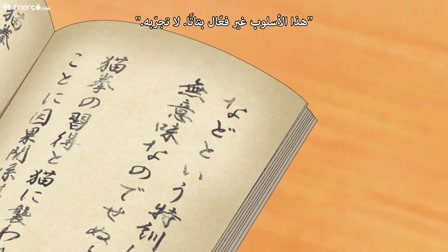 "هذا الأسلوب غير فعّال بتاتًا. لا تجرّبه."
などという特訓
無意味なのでせぬ
猫拳の習得と猫に襲わ
ことに因果関係